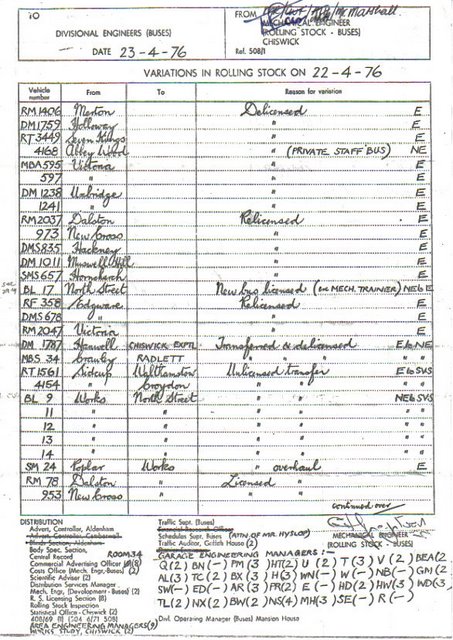 TO
FROM
DIVISIONAL ENGINEERS (BUSES)
MECHANICAL ENGINEER
(ROLLING STOCK - BUSES)
CHISWICK
DATE 23-4-76
Ref. 508/1
VARIATIONS IN ROLLING STOCK ON 22-4-76
Vehicle number From To Reason for variation
RM 1406 Merton Delicensed E
DM 1759 Holloway " E
RT 3449 Seven Kings " E
4168 Abbey Wood " (PRIVATE STAFF BUS) NE
MBA 595 Victoria " E
597 " " E
DM 1238 Uxbridge " E
1241 " " E
RM 2037 Dalston Relicensed E
973 New Cross " E
DMS 835 Hackney " E
DM 1011 Muswell Hill " E
SMS 657 Hornchurch " E
BL 17 North Street New bus licensed (ex MECH. TRAINER) NE to E
RF 358 Edgware Relicensed E
DMS 678 " " E
RM 2047 Victoria " E
DM 1787 Hanwell CHISWICK EXPTL Transferred & delicensed E to NE
MBS 34 Cranley RADLETT " " " "
RT 1561 Sidcup Walthamstow Unlicensed transfer E to SVS
4154 " Croydon " " "
BL 9 Works North Street " " NE to SVS
11 " " " " "
12 " " " " "
13 " " " " "
14 " " " " "
SM 24 Poplar Works " overhaul E
RM 78 Dalston Licensed "
953 New Cross " " "
continued over
DISTRIBUTION
Advert. Controller, Aldenham
Body Spec. Section,
Central Record ROOM 34
Commercial Advertising Officer (8)
Costs Office (Mech. Engr. Buses) (2)
Scientific Adviser (2)
Distribution Services Manager
Mech. Engr. (Development - Buses) (2)
R. S. Licensing Section (8)
Rolling Stock Inspection
Statistical Office - Chiswick (2)
AREA ENGINEERING MANAGERS (9)
WORKS STUDY, CHISWICK (2)
Traffic Supt. (Buses)
Schedules Supt. (Buses) (ATTN OF MR. HYSLOP)
Traffic Auditor, Griffith House (2)
MECHANICAL ENGINEER
(ROLLING STOCK - BUSES)
GARAGE ENGINEERING MANAGERS :-
Q (2) BN (-) PM (3) HT (2) U (2) T (3) V (2) BEA (2)
AL (3) TC (2) BX (3) H (3) WN (-) W (-) NB (-) GM (2)
SW (-) ED (-) AR (3) PR (2) E (-) HD (2) HW (3) WD (3)
TL (2) NX (2) BW (2) NS (4) MH (3) SE (-) R (-)
Divl. Operating Manager (Buses) Mansion House